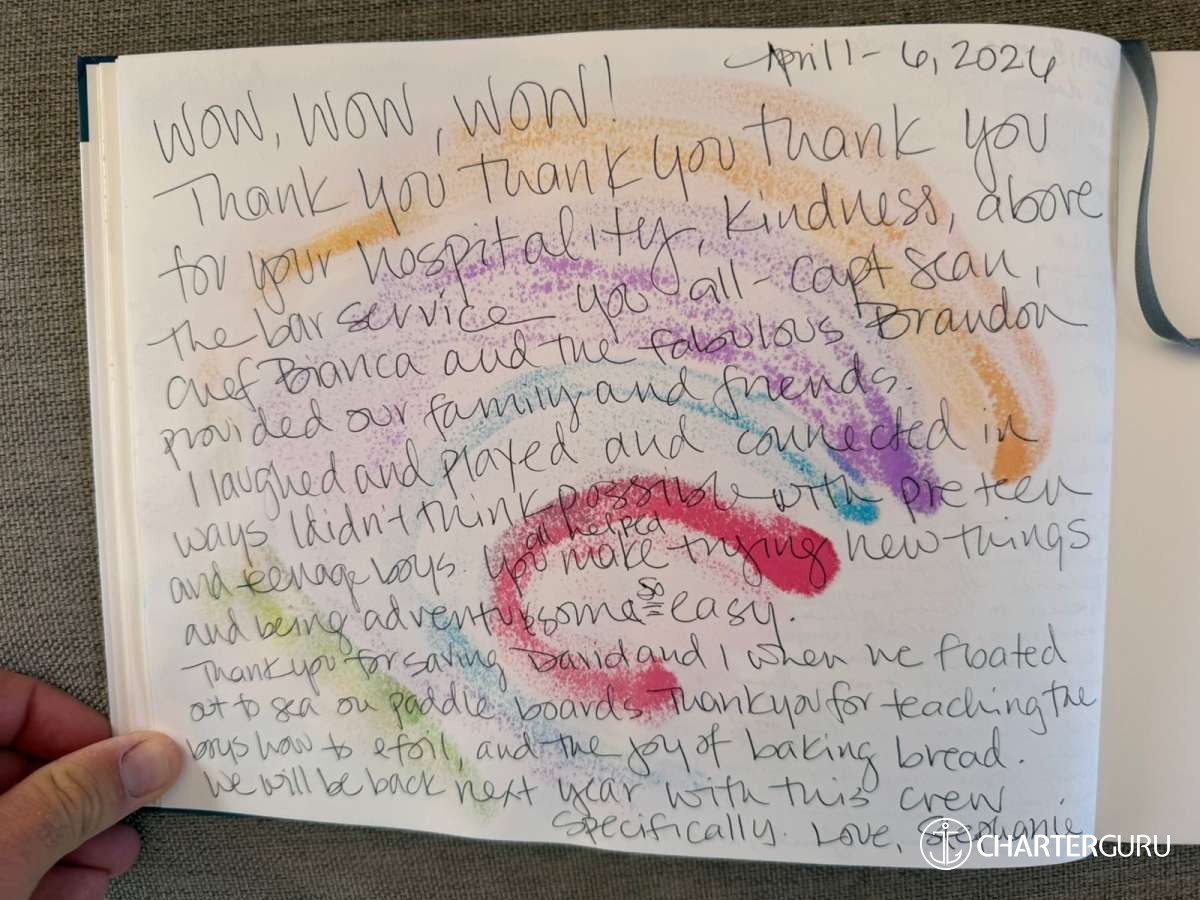 April 1 - 6, 2026
WOW, WOW, WOW!
Thank you thank you thank you
for your hospitality, kindness, above
the bar service you all - Capt Sean,
Chef Bianca and the fabulous Brandon
provided our family and friends.
I laughed and played and connected in
ways I didn't think possible with preteen
and teenage boys. You all helped make trying new things
and being adventuresome so easy.
Thank you for saving David and I when we floated
out to sea on paddle boards. Thank you for teaching the
boys how to efoil, and the joy of baking bread.
We will be back next year with this crew
specifically. Love, Stephanie
CHARTERGURU